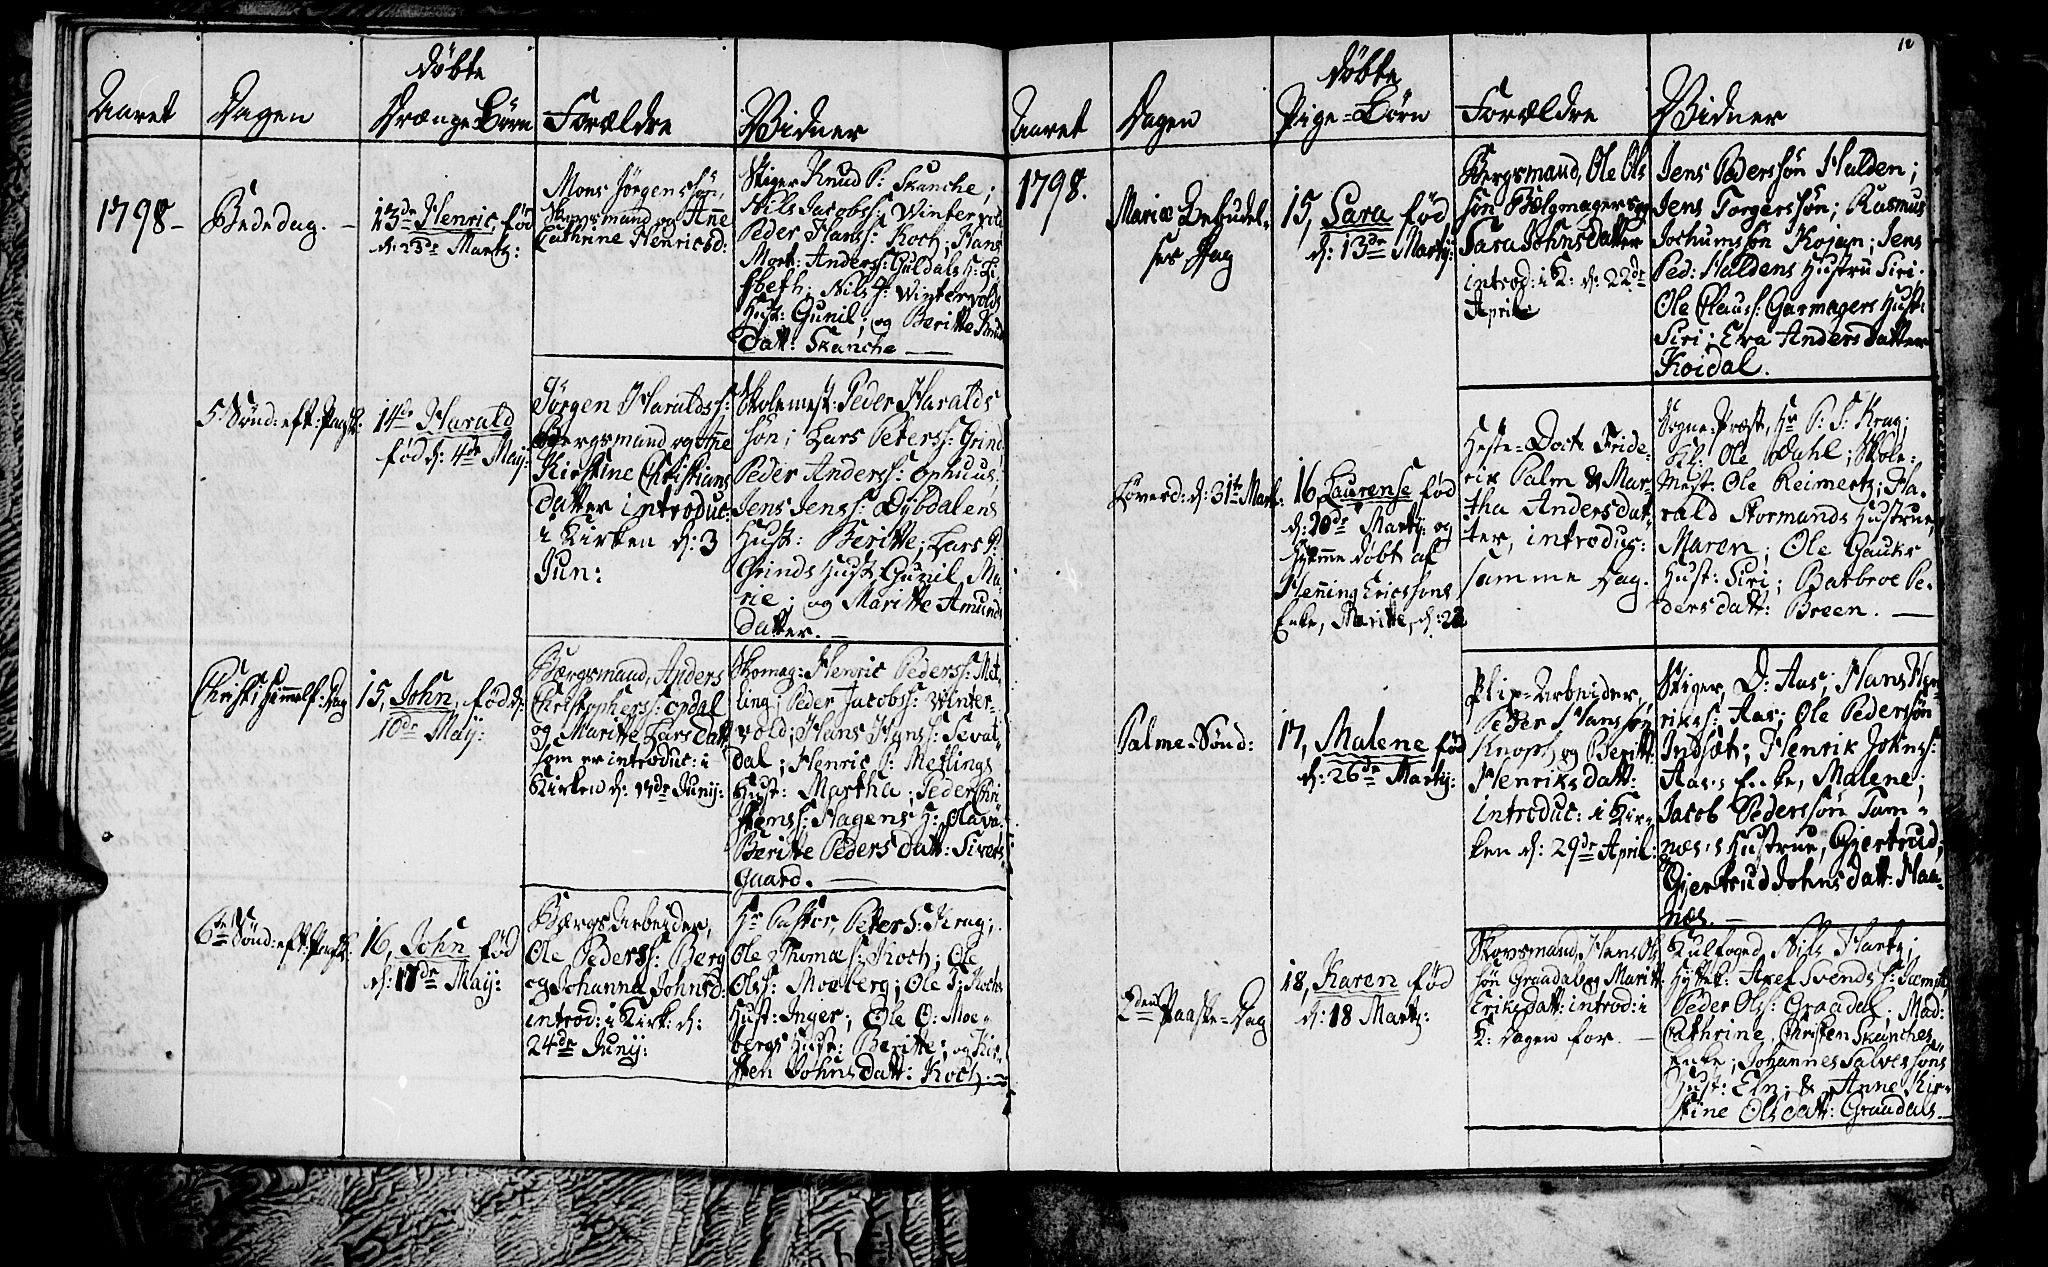 Aaret
Dagen
døbte
Drænge Børn
Forældre
Vidner
1798-
Bededag.
13de Henric, fød
d: 23de Martz:
Mons Jørgenssøn,
Skovsmand og Anne
Cathrine Henricsd:
Stiger Knud P: Skanche;
Nils Jacobss: Wintervold
Peder Hanss: Koch; Hans
Mort: Anderss: Guldals H: Li-
sbeth; Nils J: Wintervolds
Hust: Gunil; og Beritte Knud
Datt: Skanche
5 Sønd: eft: Paaske:
14de Harald
fød d: 4de Maij:
Jørgen Haraldss:
Bergsmand og
Kirstine Christians
datter introduc:
i Kirken d: 3
Jun:
Skolemest: Peder Haralds
søn; Lars Peterss: Grind
Peder Anderss: ophuus,
Jens Jenss: Dybdalens
Hust: Beritte; Lars P:
Grinds Hust: Gunil Ma-
rie; og Maritte Amunds
datter.
Christi Himmelf: Dag
15, John, fød d:
10de Maij:
Bergsmand, Anders
Christophers: opdal
og Maritte Larsdatt
som er introduc: i
Kirken d: Junij:
Skomag: Henric Peders: Met-
ling; Peder Jacobss: Winter-
vold; Hans Hanss: Sevat-
dal; Henric P: Metlings
Hust: Martha; Peder Chri-
stenss: Hagens H: Olava
Beritte Peders datt: Siverts
gaard.
6te Sønd: eft: Paaske.
16, John fød
d: 17de Maij:
Bergs Arbeider,
Ole Peders: Berg
og Johanna Johnsd:
introd: i Kirk: d:
24de Junij:
Hr Pastor, Peter S: Krag;
Ole Thomæs: Koch; Ole
Olss: Moeberg; Ole T: Kochs
Hust: Inger; Ole O: Moe-
bergs Hust: Beritte; og Kir-
sten Johns datt: Koch.
12
Aaret
Dagen
døbte
Pige-Børn
Forældre
Vidner
1798.
Mariæ Bebudel-
ses Dag
15, Sara fød
d: 13de Martij:
Bergsmand, Ole Ols
søn Bælgmager og
Sara Johnsdatter
introd: i K: d: 22de
April
Jens Pederssøn Halden;
Jens Torgerssøn; Rasmus
Jochumssøn Kojan; Jens
Ped: Haldens Hustru Siri.
Ole Clauss: Garmagers Hust:
Siri; Eva Andersdatter
Koidal.
Løverd: d: 31te Mart:
16, Laurense fød
d: 20de Martij og
hjemme døbt af
Henning Ericssøns
Enke, Maritte, d: 22
Heste-Doct: Fride-
rik Palm & Mar-
tha Andersdat-
ter, introduc:
samme Dag.
Sogne-Præst, Hr P: S: Krag;
Kl: Ole Dahl; Skole-
Mest: Ole Reimertz; Ha-
rald Stormands Hustrue,
Maren; Ole Gauks
Hust: Siri; Barbroe Pe-
dersdatt: Breen.
Palme-Sønd:
17, Malene fød
d: 26de Martij:
Peder Hanssøn
Knoph og Beritte
Henriksdatt:
introduc: i Kir-
ken d: 29de April:
Stiger, D: Aas, Hans Hen-
rikss: Aas; Ole Pederssøn
Indsæt; Henrik Johnss:
Aas's Enke, Malene;
Jacob Pederssøn Tam-
næs's Hustrue, Gjertrud;
Gjertrud Johnsdatt: Haa-
næs.
2den Paaske-Dag
18, Karen fød
d: 18 Martz:
Skovsmand, Hans Ols
søn Graadal og Maritt
Eriksdatt: introd: i
K: Dagen for.
Kulfoged, Nils Hartz;
Hyttef: Axel Svendss: Kempe,
Peder Olss: Graadal; Mad:
Cathrine, Christen Skanches
Enke; Johannes Salvessøns
Hust: Eln; & Anne Kir-
stine Olsdatt: Graadals